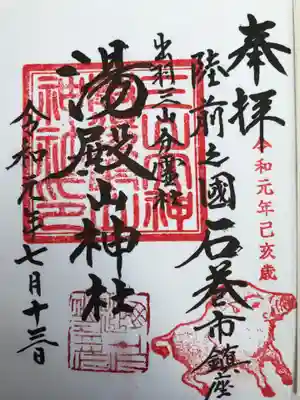 奉拝
令和元年己亥歳
陸前之國石巻市鎮座
出羽三山分霊社
湯殿山神社
令和元年七月十三日